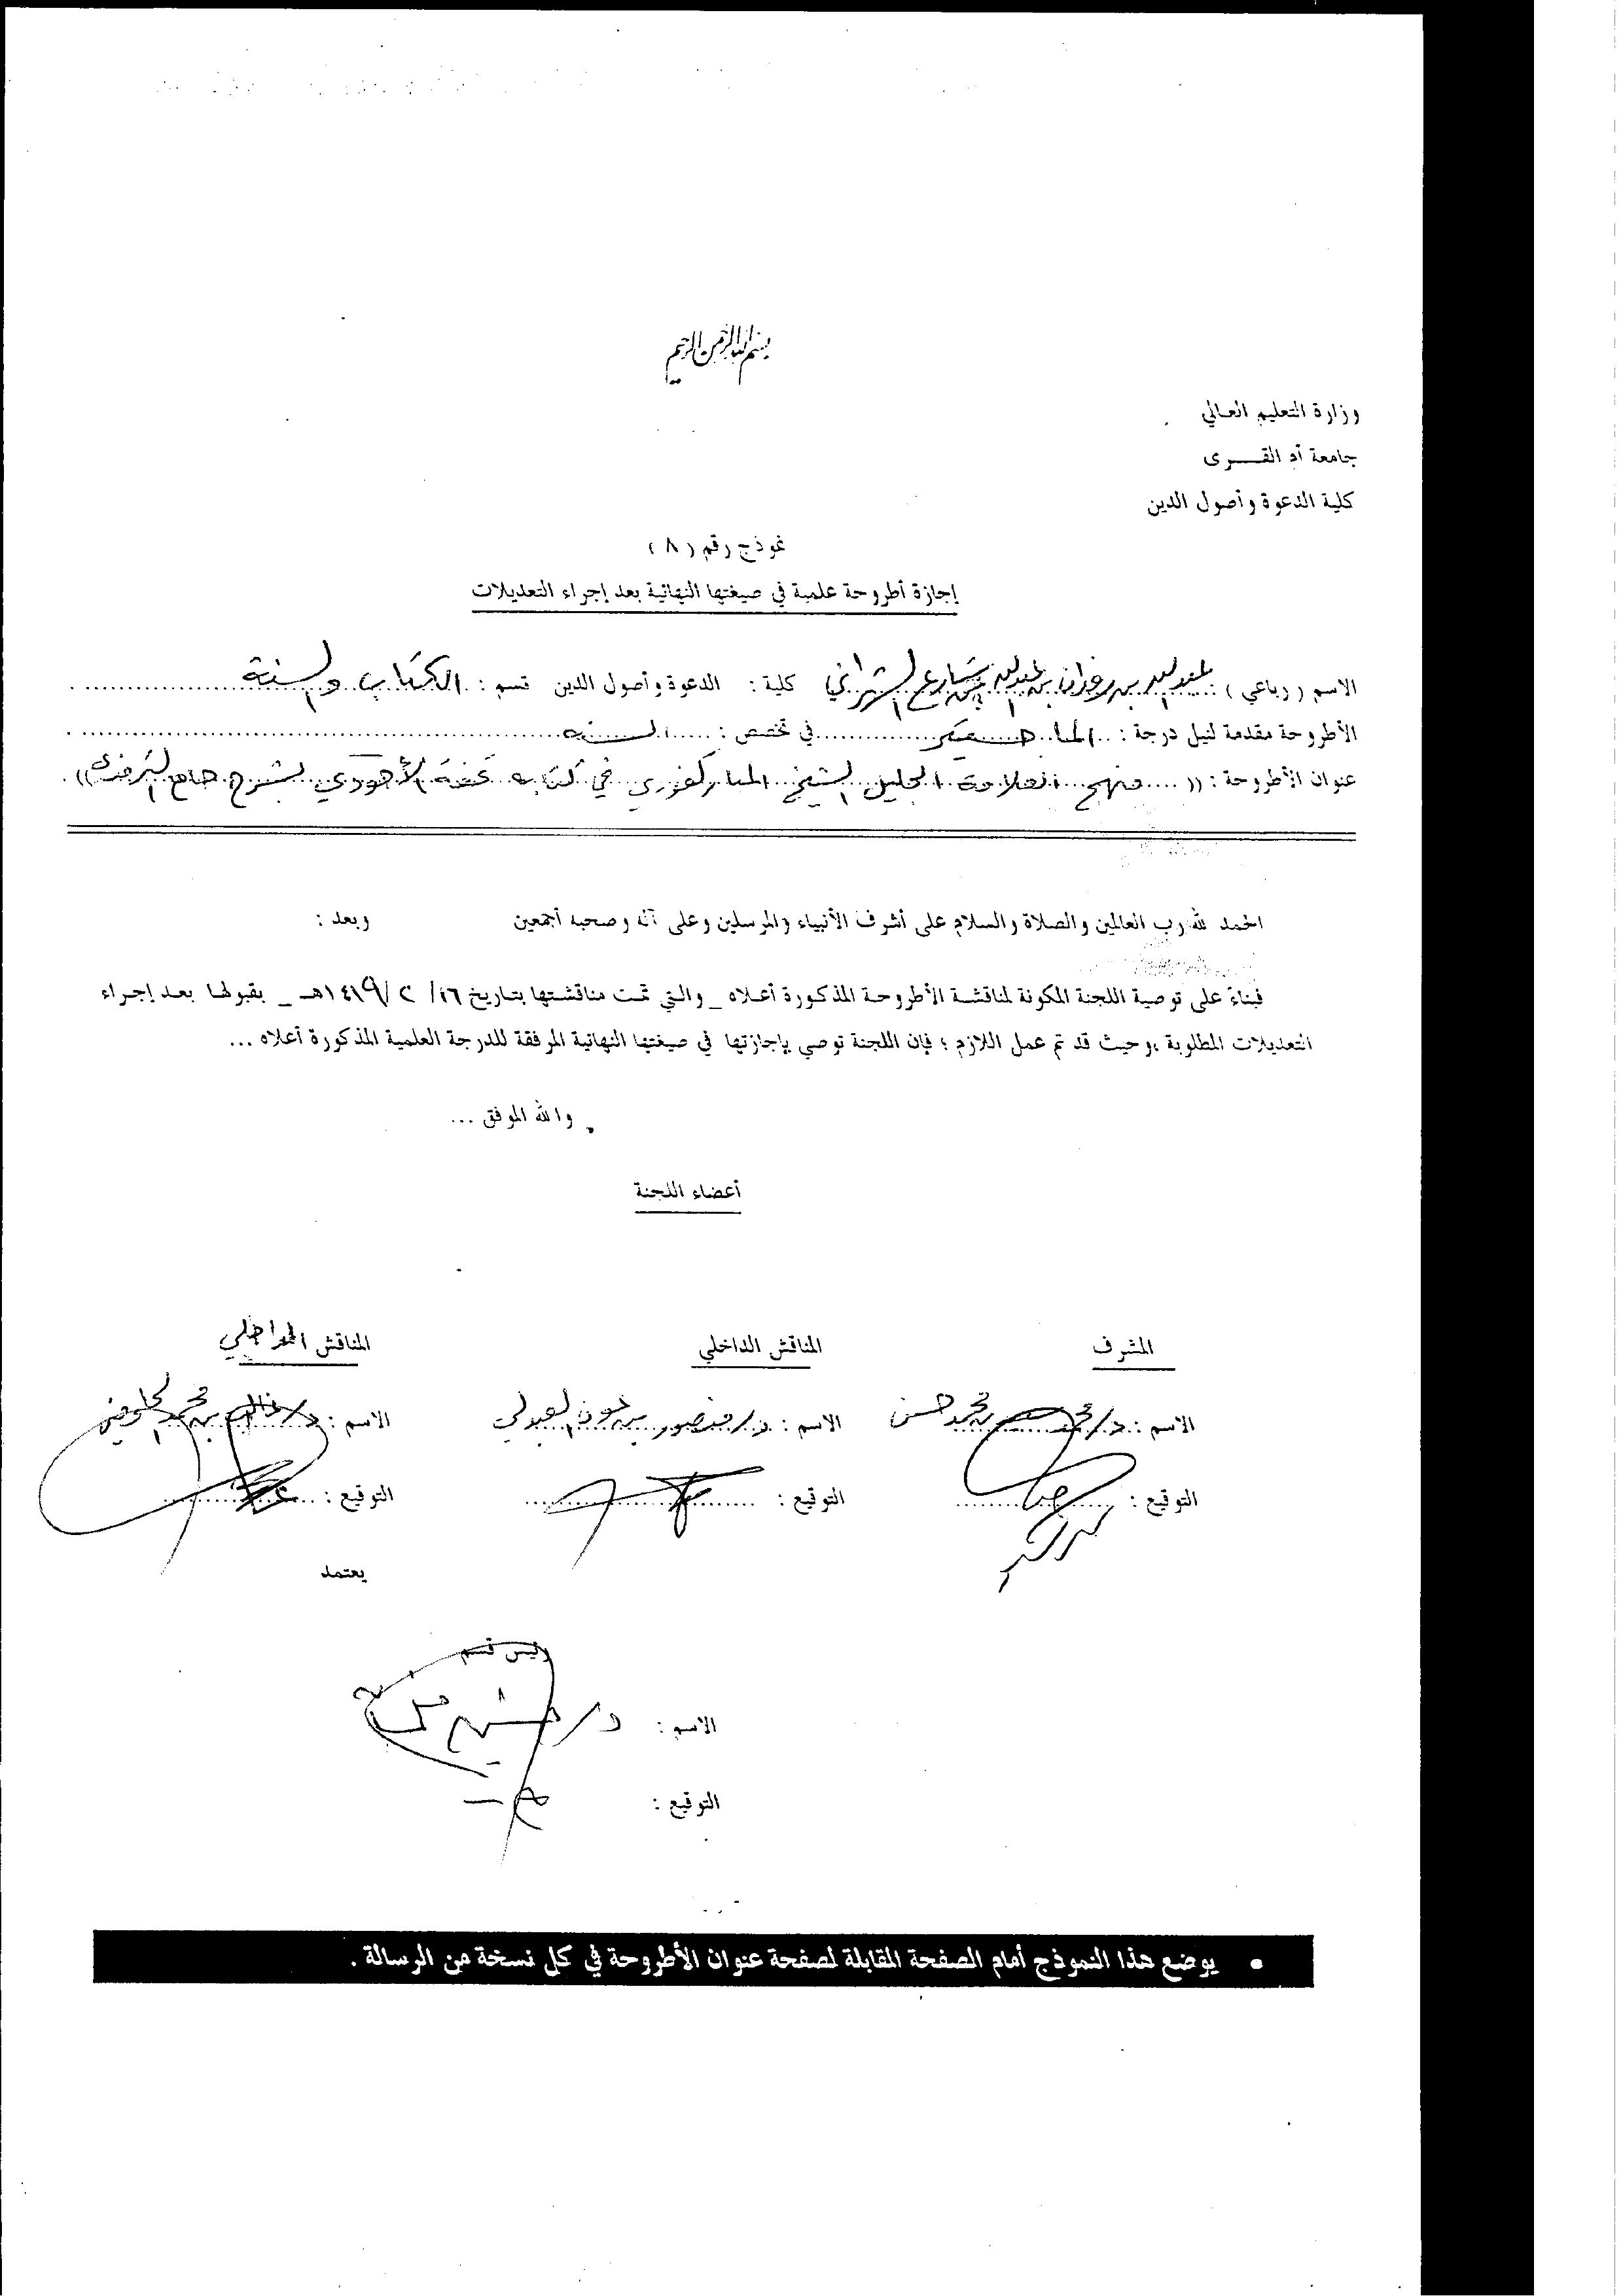 بسم الله الرحمن الرحيم
وزارة التعليم العالي
جامعة أم القــرى
كلية الدعوة وأصول الدين
نموذج رقم (٨)
إجازة أطروحة علمية في صيغتها النهائية بعد إجراء التعديلات
الاسم (رباعي) : عبد الله بن رفدان بن عبد الله بن الشهراني كلية : الدعوة وأصول الدين قسم : الكتاب والسنة
الأطروحة مقدمة لنيل درجة : الماجستير في تخصص : السنة
عنوان الأطروحة : (( منهج العلامة الجليل الشيخ المباركفوري في كتابه تحفة الأحوذي بشرح جامع الترمذي ))
الحمد لله رب العالمين والصلاة والسلام على أشرف الأنبياء والمرسلين وعلى آله وصحبه أجمعين وبعد :
فبناءً على توصية اللجنة المكونة لمناقشة الأطروحة المذكورة أعلاه _ والتي تمت مناقشتها بتاريخ ٢٦/ ٢ /١٤١٩هـ _ بقبولها بعد إجراء
التعديلات المطلوبة ،وحيث قد تم عمل اللازم ؛ فإن اللجنة توصي بإجازتها في صيغتها النهائية المرفقة للدرجة العلمية المذكورة أعلاه ...
والله الموفق ...
أعضاء اللجنة
المشرف المناقش الداخلي المناقش
الاسم : د/ محمد حسن الاسم : د/ منصور بن عون العبدلي الاسم : د/ بن محمد
التوقيع : التوقيع : التوقيع :
يعتمد
رئيس قسم
الاسم : د/
التوقيع :
• يوضع هذا النموذج أمام الصفحة المقابلة لصفحة عنوان الأطروحة في كل نسخة من الرسالة .